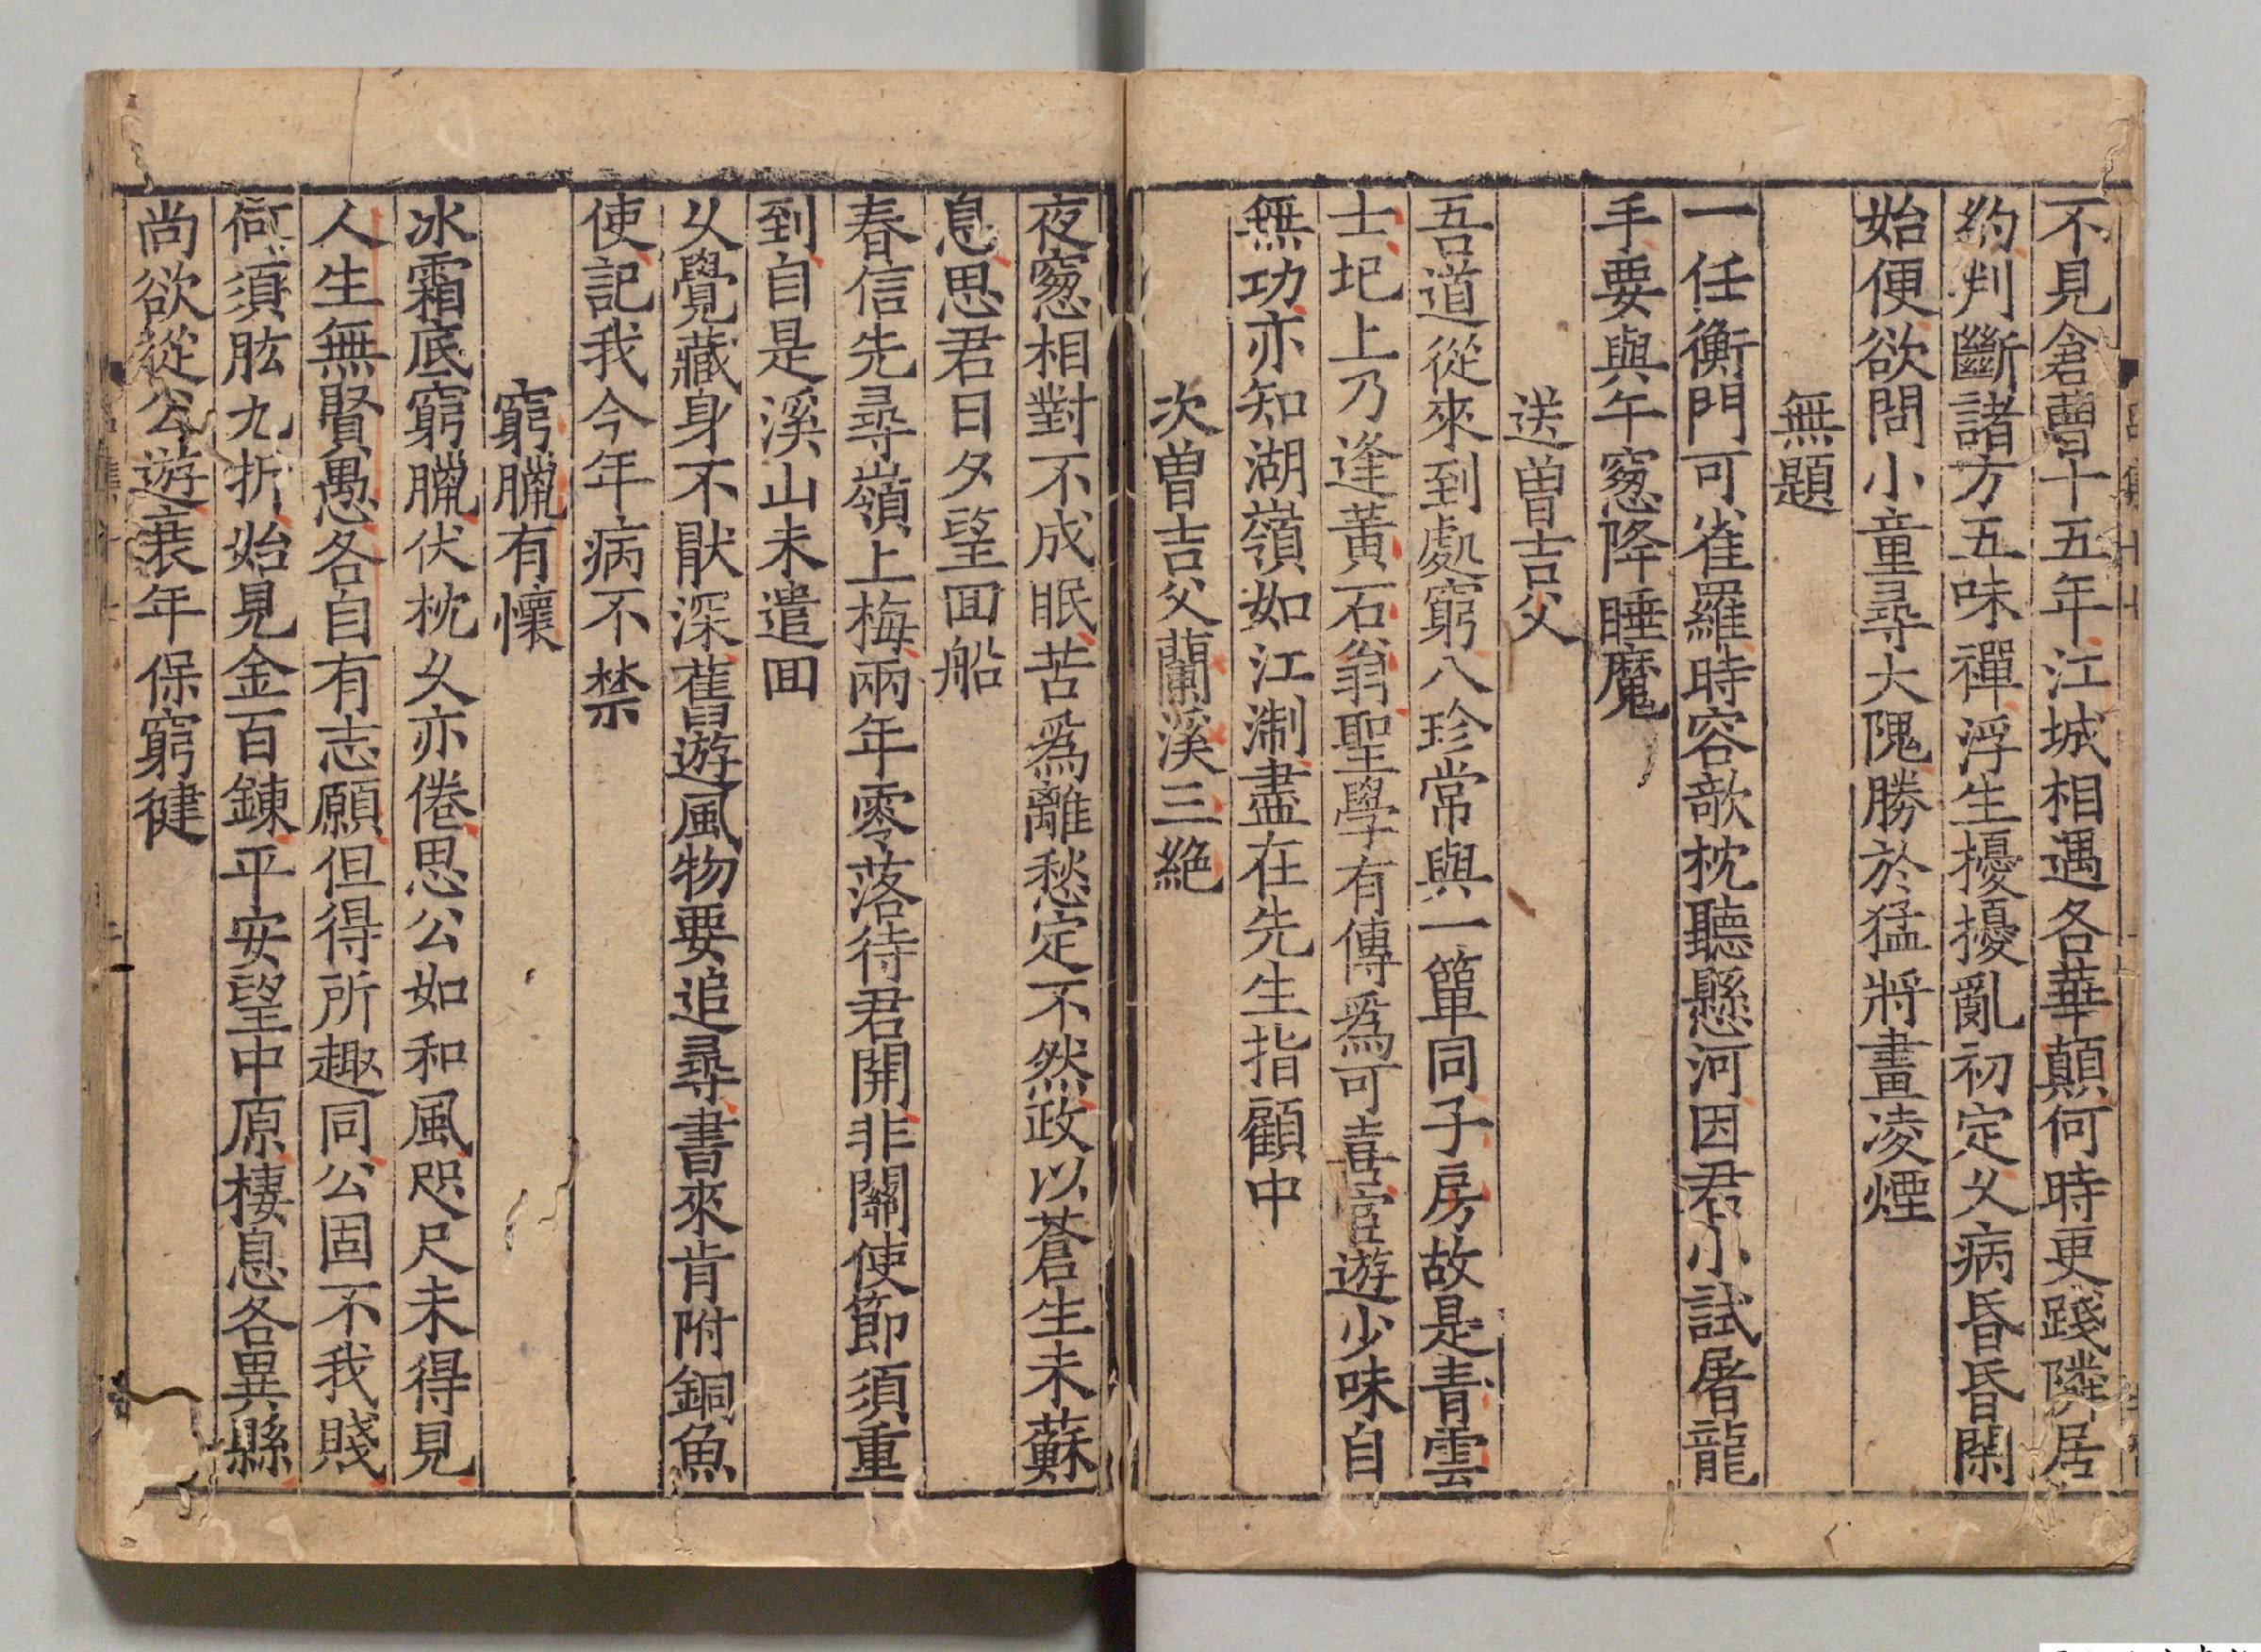 不見倉曹十五年江城相遇各華顛何時更踐隣居
約判斷諸方五味禪浮生擾擾亂初定乆病昏昏閑
始便欲問小童尋大隗勝於猛將畫凌煙
無題
一任衡門可雀羅時容欹枕聽懸河因君小試屠龍
手要與午窓降睡魔
送曽吉父
吾道從來到處窮八珍常與一簞同子房故是青雲
士圯上乃逢黃石翁聖學有傳爲可喜宦遊少味自
無功亦知湖嶺如江淛盡在先生指顧中
次曽吉父蘭溪三絶
夜窓相對不成眠苦爲離愁定不然政以蒼生未蘇
息思君日夕望囬船
春信先尋嶺上梅兩年零落待君開非關使節須重
到自是溪山未遣囬
乆覺藏身不猒深舊遊風物要追尋書來肯附銅魚
使記我今年病不禁
窮臘有懷
冰霜底窮臘伏枕乆亦倦思公如和風咫尺未得見
人生無賢愚各自有志願但得所趣同公固不我賤
何須肱九折始見金百鍊平安望中原棲息各異縣
尚欲從公遊衰年保窮健